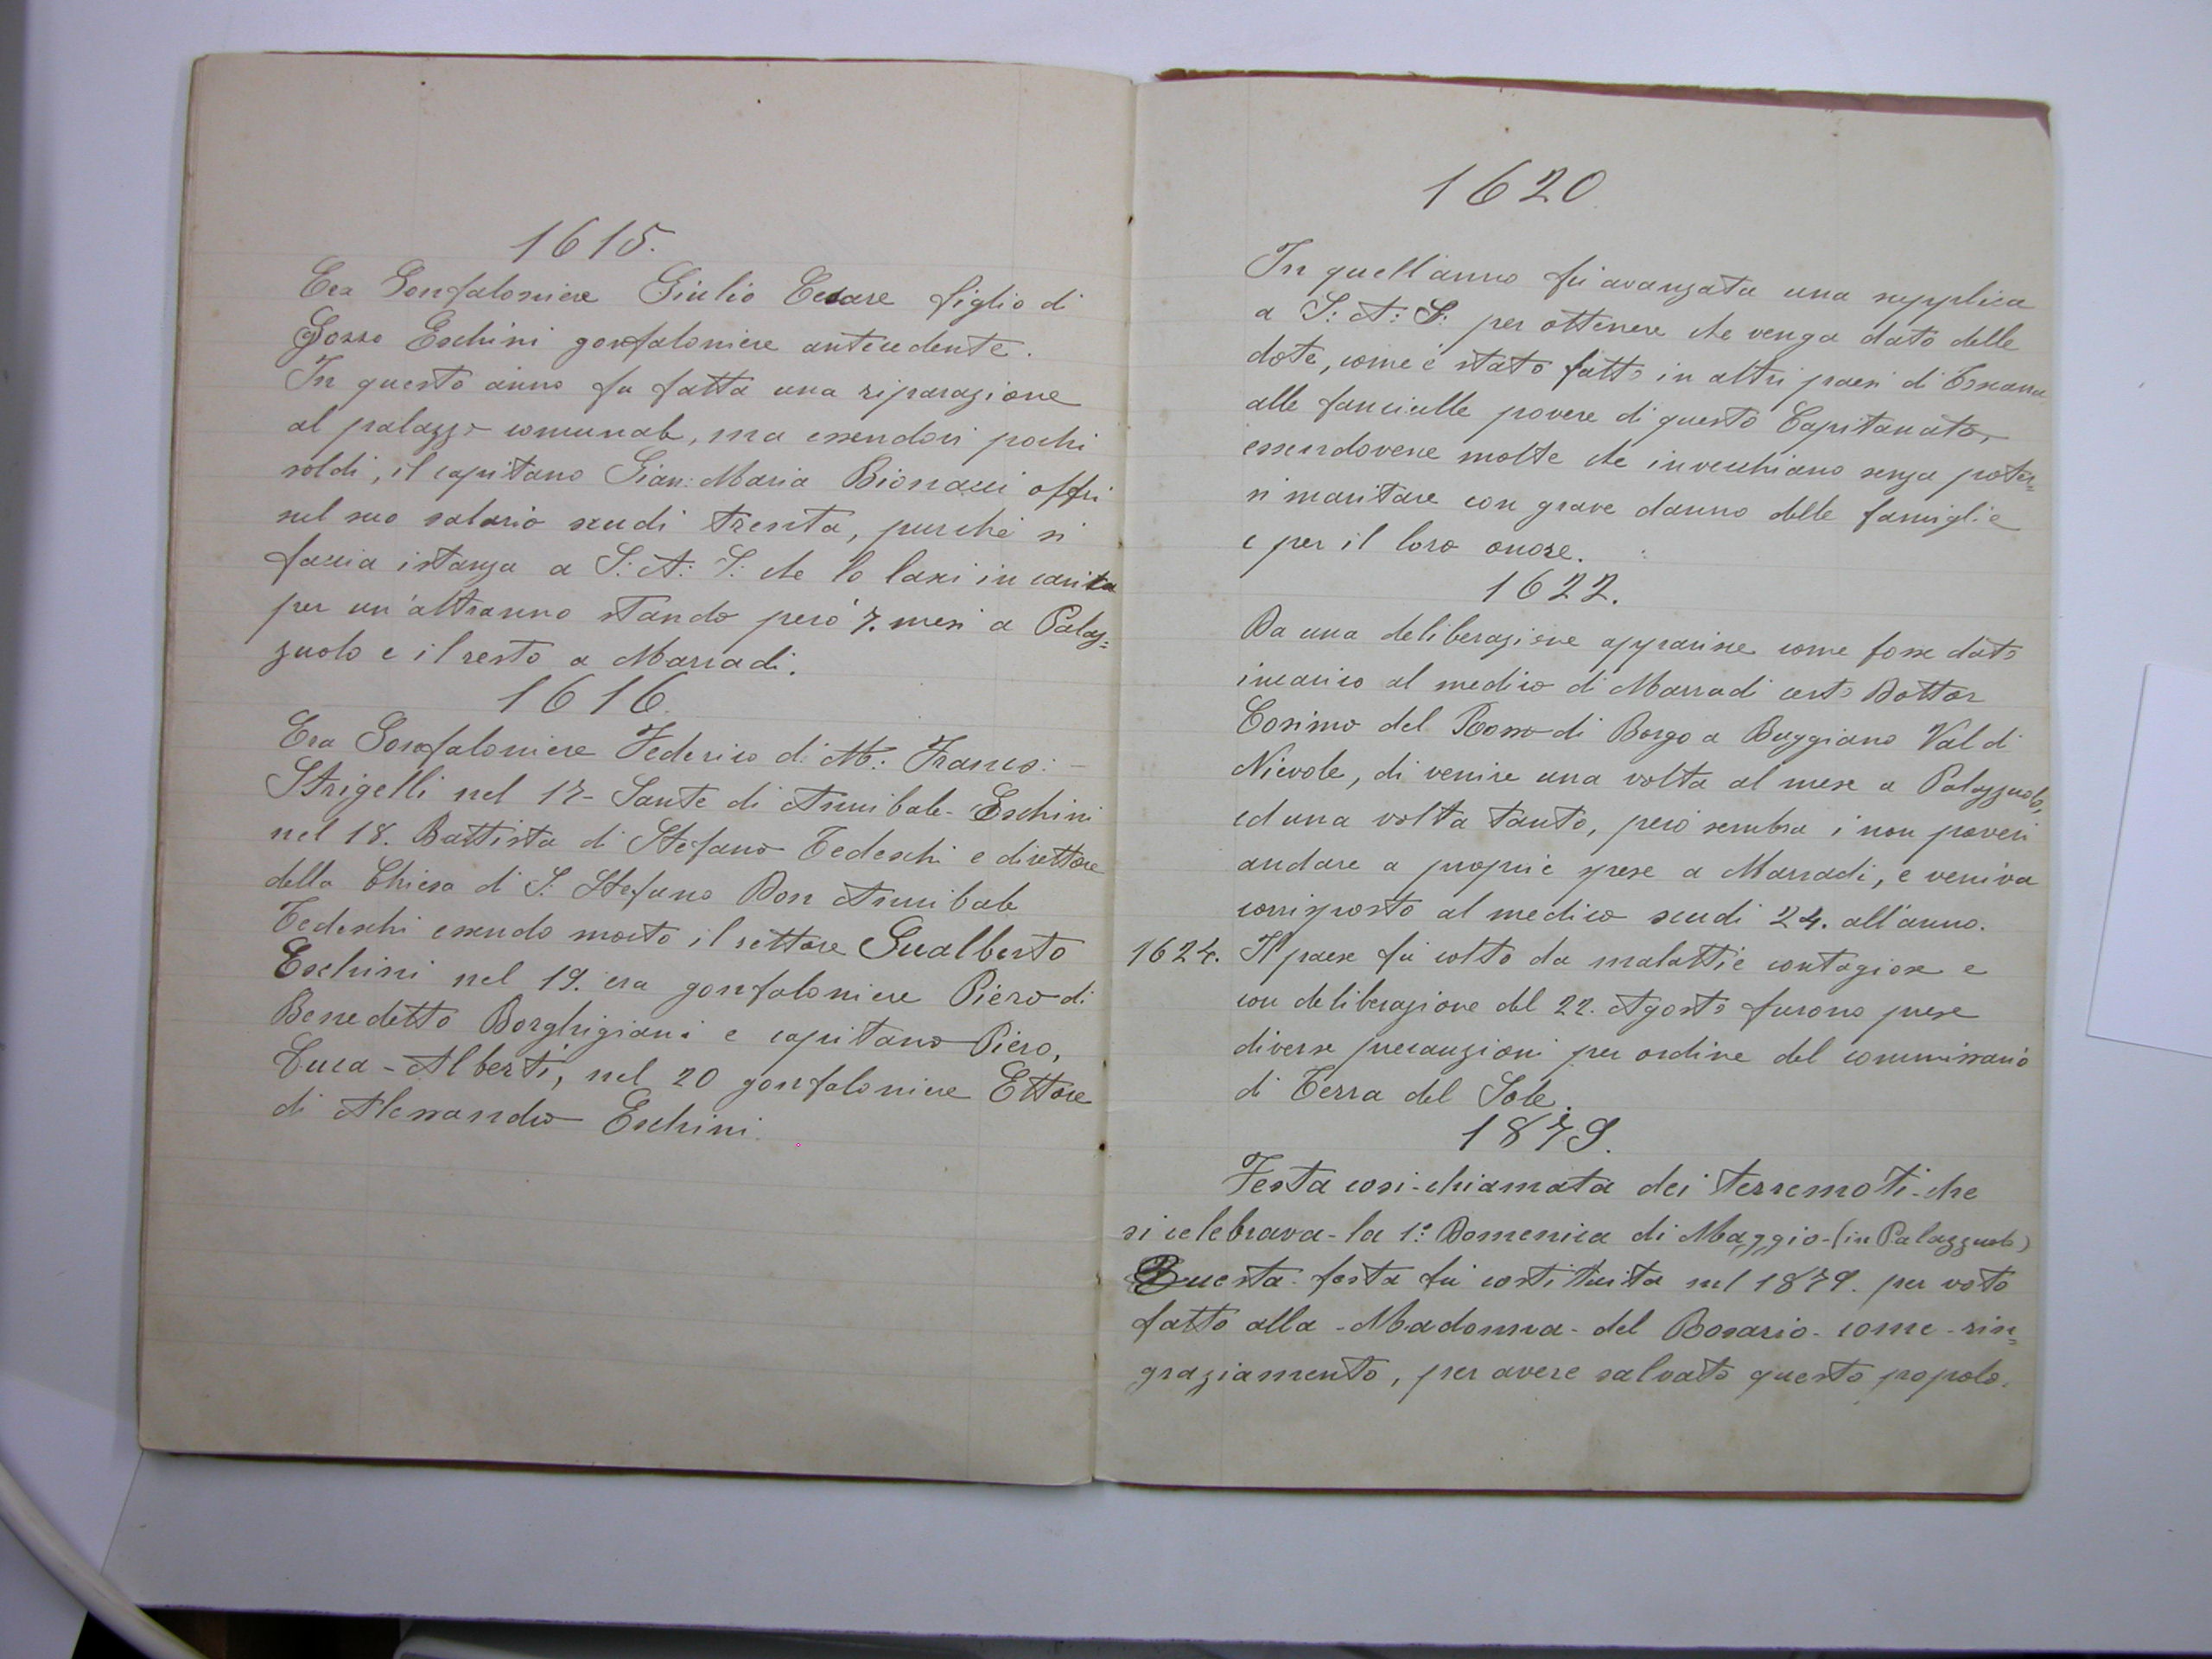 1615.
Era Gonfaloniere Giulio Cesare figlio di
Gozzo Eschini gonfaloniere antecedente.
In questo anno fu fatta una riparazione
al palazzo comunale, ma essendovi pochi
soldi, il capitano Gian: Maria offri
nel suo salario scudi trenta, purchè si
faccia istanza a S: A: S: che lo lasci in carica
per un'altranno stando però 7. mesi a Palaz=
zuolo e il resto a Marradi.
1616.
Era Gonfaloniere Federico di M: Franco: -
Strigelli nel 17 - Sante di Annibale - Eschini
nel 18. Battista di Stefano Tedeschi e direttore
della Chiesa di S. Stefano Don Annibale
Tedeschi essendo morto il rettore Gualberto
Eschini nel 19. era gonfaloniere Piero di
Benedetto Borghigiani e capitano Piero,
Luca - Alberti, nel 20 gonfaloniere Ettore
di Alessandro Eschini.
1620.
In quell'anno fù avanzata una supplica
a S: A: S: per ottenere che venga dato delle
dote, come è stato fatto in altri paesi di Toscana
alle fanciulle povere di questo Capitanato,
essendovene molte che invecchiano senza poter=
si maritare con grave danno delle famiglie
e per il loro onore.
1622.
Da una deliberazione apparisce come fosse dato
incarico al medico di Marradi certo Dottor
Cosimo del Rosso di Borgo a Buggiano Val di
Nievole, di venire una volta al mese a Palazzuolo,
ed una volta tanto, però sembra i non poveri
andare a proprie spese a Marradi, e veniva
corrisposto al medico scudi 24. all'anno.
1624. Il paese fù colto da malattie contagiose e
con deliberazione del 22. Agosto furono prese
diverse precauzioni per ordine del commissario
di Terra del Sole.
1879.
Festa cosi-chiamata dei terremoti-che
si celebrava-la 1.a Domenica di Maggio-(in Palazzuolo)
Questa festa fù costituita nel 1879. per voto
fatto alla - Madonna - del Rosario - come - rin=
graziamento, per avere salvato questo popolo.